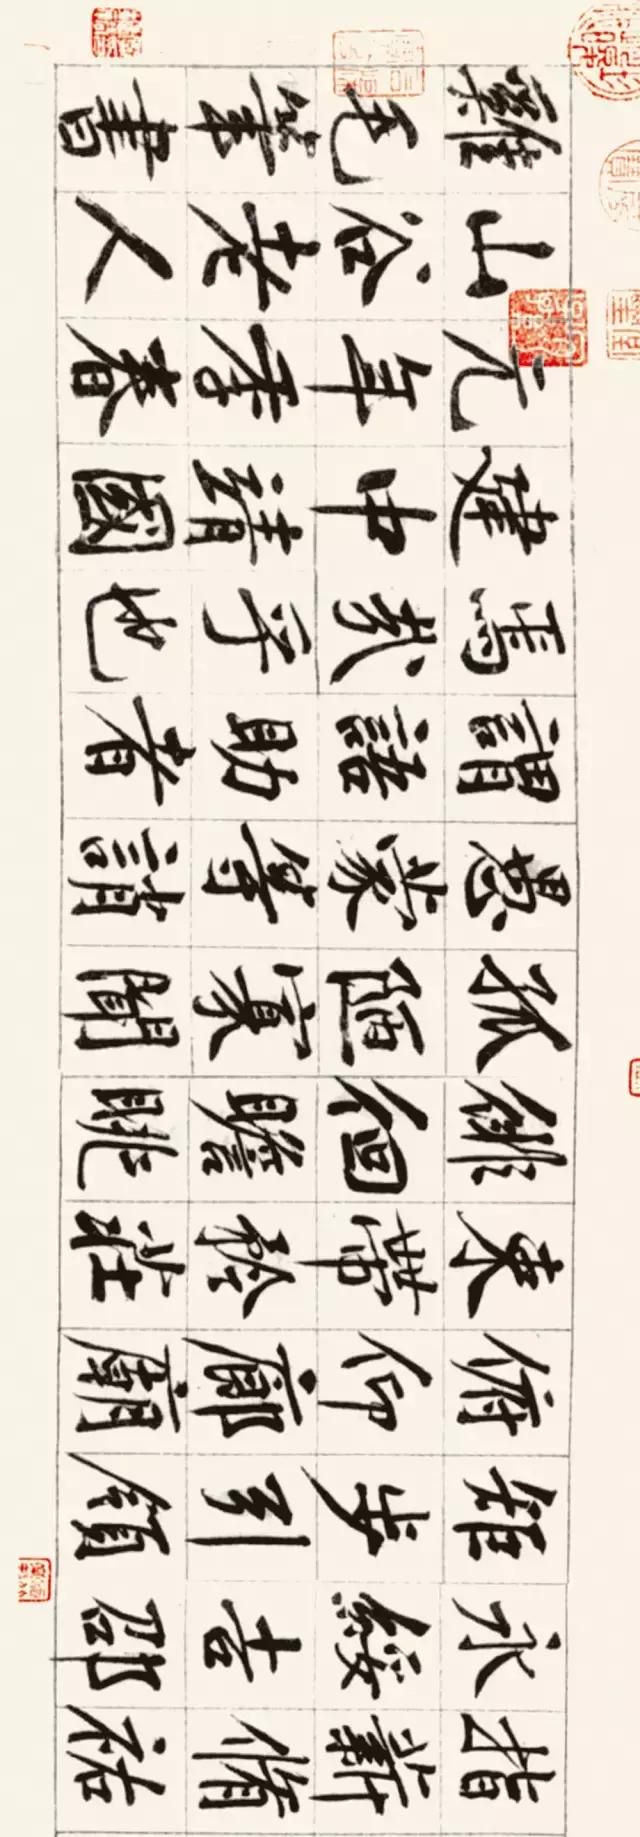 指薪脩祐
永綏吉邵
矩步引領
俯仰廊廟
束帶矜莊
俳佪瞻眺
孤陋寡聞
愚蒙等誚
謂語助者
焉哉乎也
建中靖國
元年季春
山谷老人
雞毛筆書